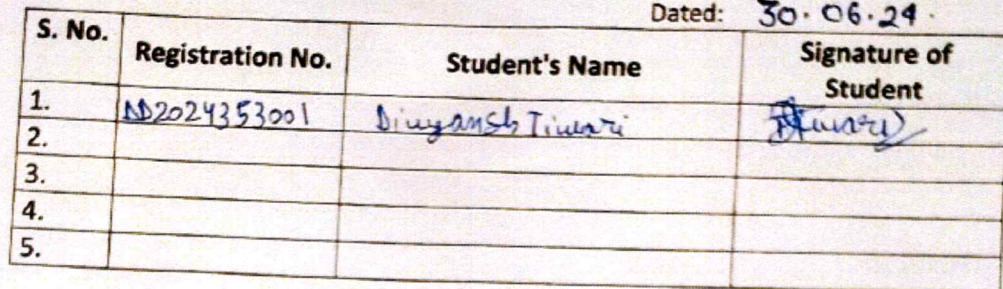 Dated: 30.06.24.
S. No. Registration No. Student's Name Signature of Student
1. AD2024353001 Divyansh Tiwari
2.
3.
4.
5.